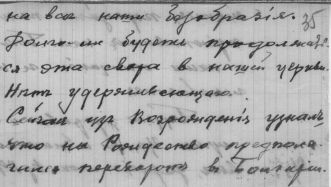 на все наши безобразія. 35
Долго-ли будетъ продолжат-
ся эта свара в нашей церкви.
Нѣтъ удерживающаго.
Сейчас из Возрожденія узналъ
что на Рождество предпола
гался переворотъ в Болгаріи